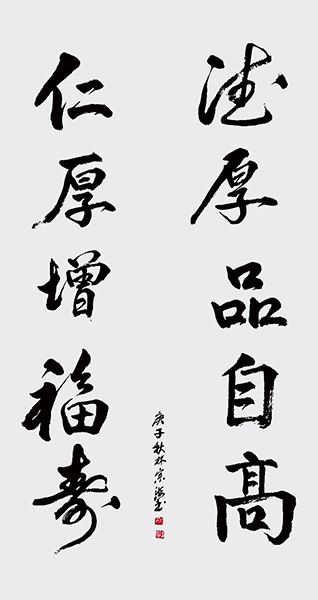 德厚品自高
仁厚增福寿
庚子秋林宗